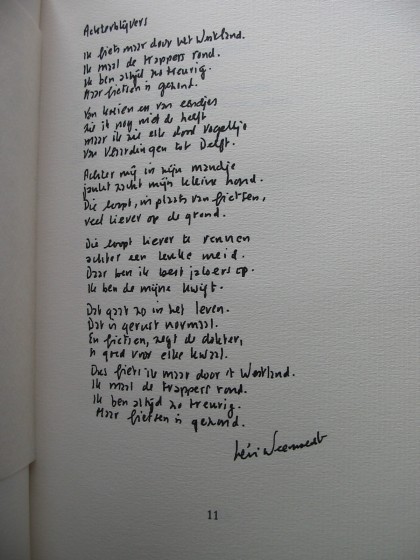 Achterblijvers
Ik fiets maar door het Westland.
Ik maal de trappers rond.
Ik ben altijd zo treurig.
Maar fietsen is gezond.
Van koeien en van eendjes
zie ik nog niet de helft
maar ik zie elke dood vogeltje
van Vlaardingen tot Delft.
Achter mij in mijn mandje
jankt zacht mijn kleine hond.
Die loopt, in plaats van fietsen,
veel liever op de grond.
Die loopt liever te rennen
achter een leuke meid.
Daar ben ik best jaloers op.
Ik ben de mijne kwijt.
Dat gaat zo in het leven.
Dat is gerust normaal.
En fietsen, zegt de dokter,
is goed voor elke kwaal.
Dus fiets ik maar door 't Westland.
Ik maal de trappers rond.
Ik ben altijd zo treurig.
Maar fietsen is gezond.
11